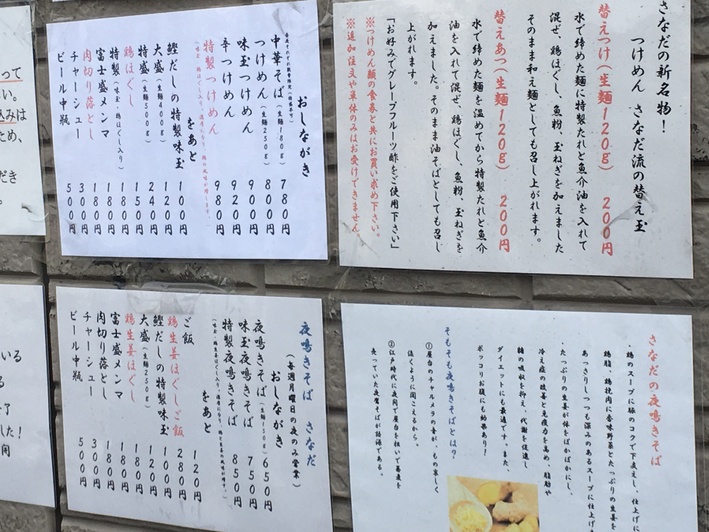 さなだの新名物！
つけめん さなだ流の替え玉
替えつけ（生麺120g） 200円
水で締めた麺に特製たれと魚介油を入れて
混ぜ、鶏ほぐし、魚粉、玉ねぎを加えました
そのまま和え麺としても召し上がれます。
替えあつ（生麺120g） 200円
水で締めた麺を温めてから特製たれと魚介
油を入れて混ぜ、鶏ほぐし、魚粉、玉ねぎを
加えました。そのまま油そばとしても召し
上がれます。
「お好みでグレープフルーツ酢をご使用下さい」
※つけめん類の食券と共にお買い求め下さい。
※追加注文や単体のみはお受けできません。
おしながき
中華そば（生麺180g） 780円
つけめん（生麺250g） 800円
味玉つけめん 900円
辛つけめん 920円
特製つけめん 980円
をあと
鰹だしの特製味玉 100円
大盛（生麺400g） 120円
特盛（生麺500g） 240円
鶏ほぐし 150円
特製（味玉・鶏ほぐし入り） 180円
富士盛メンマ 180円
肉切り落とし 180円
チャーシュー 300円
ビール中瓶 500円
夜鳴きそば さなだ
（毎週月曜日の夜のみ営業）
おしながき
夜鳴きそば（生麺150g） 650円
味玉夜鳴きそば 750円
特製夜鳴きそば 850円
をあと
ご飯 120円
鶏生姜ほぐしご飯 280円
鰹だしの特製味玉 100円
大盛（生麺250g） 120円
鶏生姜ほぐし 180円
富士盛メンマ 180円
肉切り落とし 180円
チャーシュー 300円
ビール中瓶 500円
さなだの夜鳴きそば
鶏のスープに豚のコクで下支えし、仕上げに
鶏脂、鶏挽肉に香味野菜とたっぷりの生姜を
あっさりしつつも深みのあるスープに仕上げま
・たっぷりの生姜が体をぽかぽかにし、
冷え症の改善と免疫力を高め、脂肪や
糖の吸収を抑え、代謝を促進し
ダイエットにも最適です。また、
ポッコリお腹にも効果あり！
そもそも夜鳴きそばとは？
①屋台のチャルメラの音が、もの哀しく
泣くように聞こえるから。
②江戸時代に夜間で屋台を担いで蕎麦を
売っていた夜鷹そばが語源である。